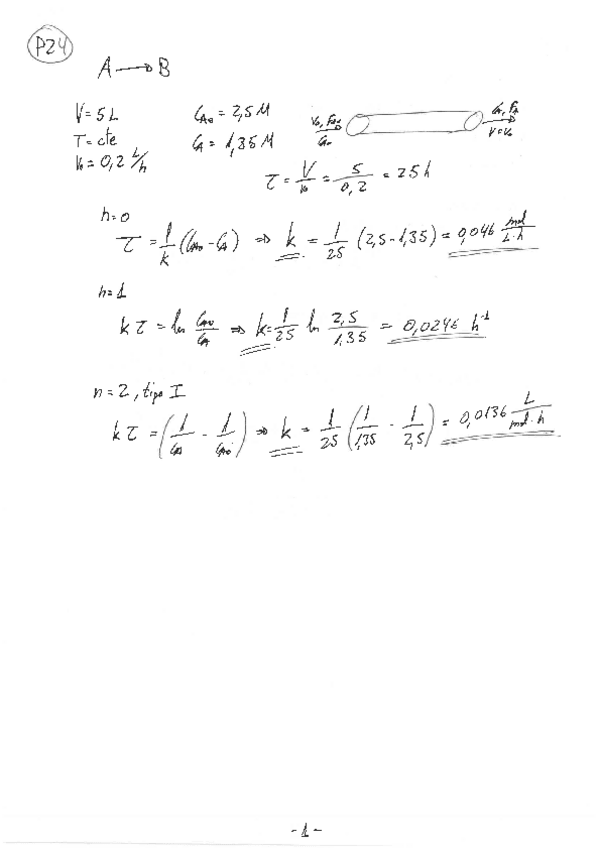 P24
A → B
V = 5 L
C_A0 = 2,5 M
v₀, F_A0
C_A0
C_A, F_A
v = v₀
T = cte
C_A = 1,35 M
v₀ = 0,2 L/h
τ = V/v₀ = 5/0,2 = 25 h
n = 0
τ = 1/k (C_A0 - C_A) ⇒ k = 1/25 (2,5 - 1,35) = 0,046 mol/L·h
n = 1
k τ = ln C_A0/C_A ⇒ k = 1/25 ln 2,5/1,35 = 0,0246 h⁻¹
n = 2, tipo I
k τ = (1/C_A - 1/C_A0) ⇒ k = 1/25 (1/1,35 - 1/2,5) = 0,0136 L/mol·h
-1-